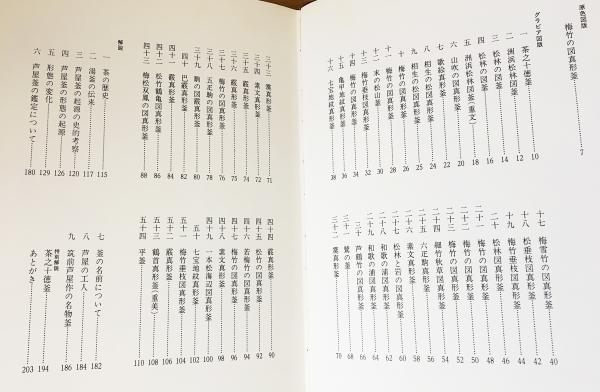 原色図版
梅竹の図真形釜 7
グラビア図版
一 茶之十徳釜 10
二 洲浜松林図釜 12
三 松林の図釜 14
四 松林図釜 16
五 洲浜松林図釜(重文) 18
六 山吹の図真形釜 20
七 歌絵真形釜 22
八 相生の松図真形釜 24
九 相生の松図真形釜 25
十 梅竹の図真形釜 26
十一 末の松山釜 30
十二 梅竹垂枝図真形釜 32
十三 梅竹の図真形釜 34
十五 亀甲地紋真形釜 36
十六 七宝地紋真形釜 38
十七 梅雪竹の図真形釜 40
十八 松垂枝図真形釜 42
十九 梅竹垂枝図真形釜 44
二十 松林図真形釜 46
二十一 梅竹の図真形釜 48
二十二 梅竹の図真形釜 50
二十三 梅竹の図真形釜 52
二十四 細竹秋草図真形釜 54
二十五 六疋駒真形釜 56
二十六 素文真形釜 58
二十七 松林と岩の図真形釜 60
二十八 和歌の浦図真形釜 62
二十九 和歌の浦図真形釜 64
三十 芦鶴竹の図真形釜 66
三十一 鷺の釜 68
三十二 霰真形釜 70
三十三 霰真形釜 71
三十四 素文真形釜 72
三十五 霰真形釜 74
三十六 霰真形釜 75
三十七 梅竹の図真形釜 76
三十八 五疋駒の図真形釜 78
三十九 駒の図霰真形釜 80
四十 巴霰真形釜 82
四十一 霰真形釜 84
四十二 松竹鶴亀図真形釜 86
四十三 梅松双鳳の図真形釜 88
四十四 霰真形釜 90
四十五 松竹の図真形釜 92
四十六 若梅竹の図真形釜 94
四十七 梅竹の図真形釜 96
四十八 素文真形釜 98
四十九 一本松海辺図真形釜 100
五十 七宝地紋真形釜 102
五十一 梅竹垂枝図真形釜 104
五十二 霰真形釜 106
五十三 鶴首真形釜(重美) 108
五十四 平釜 110
解説
一 茶の歴史 115
二 湯釜の伝来 117
三 芦屋釜の起源の史的考察 120
四 芦屋釜の形態の起源 126
五 形態の変化 129
六 芦屋釜の鑑定について 180
七 釜の名称について 182
八 芦屋の工人 184
九 筑前芦屋作の名物釜 186
特別解説
茶之十徳釜 194
あとがき 203